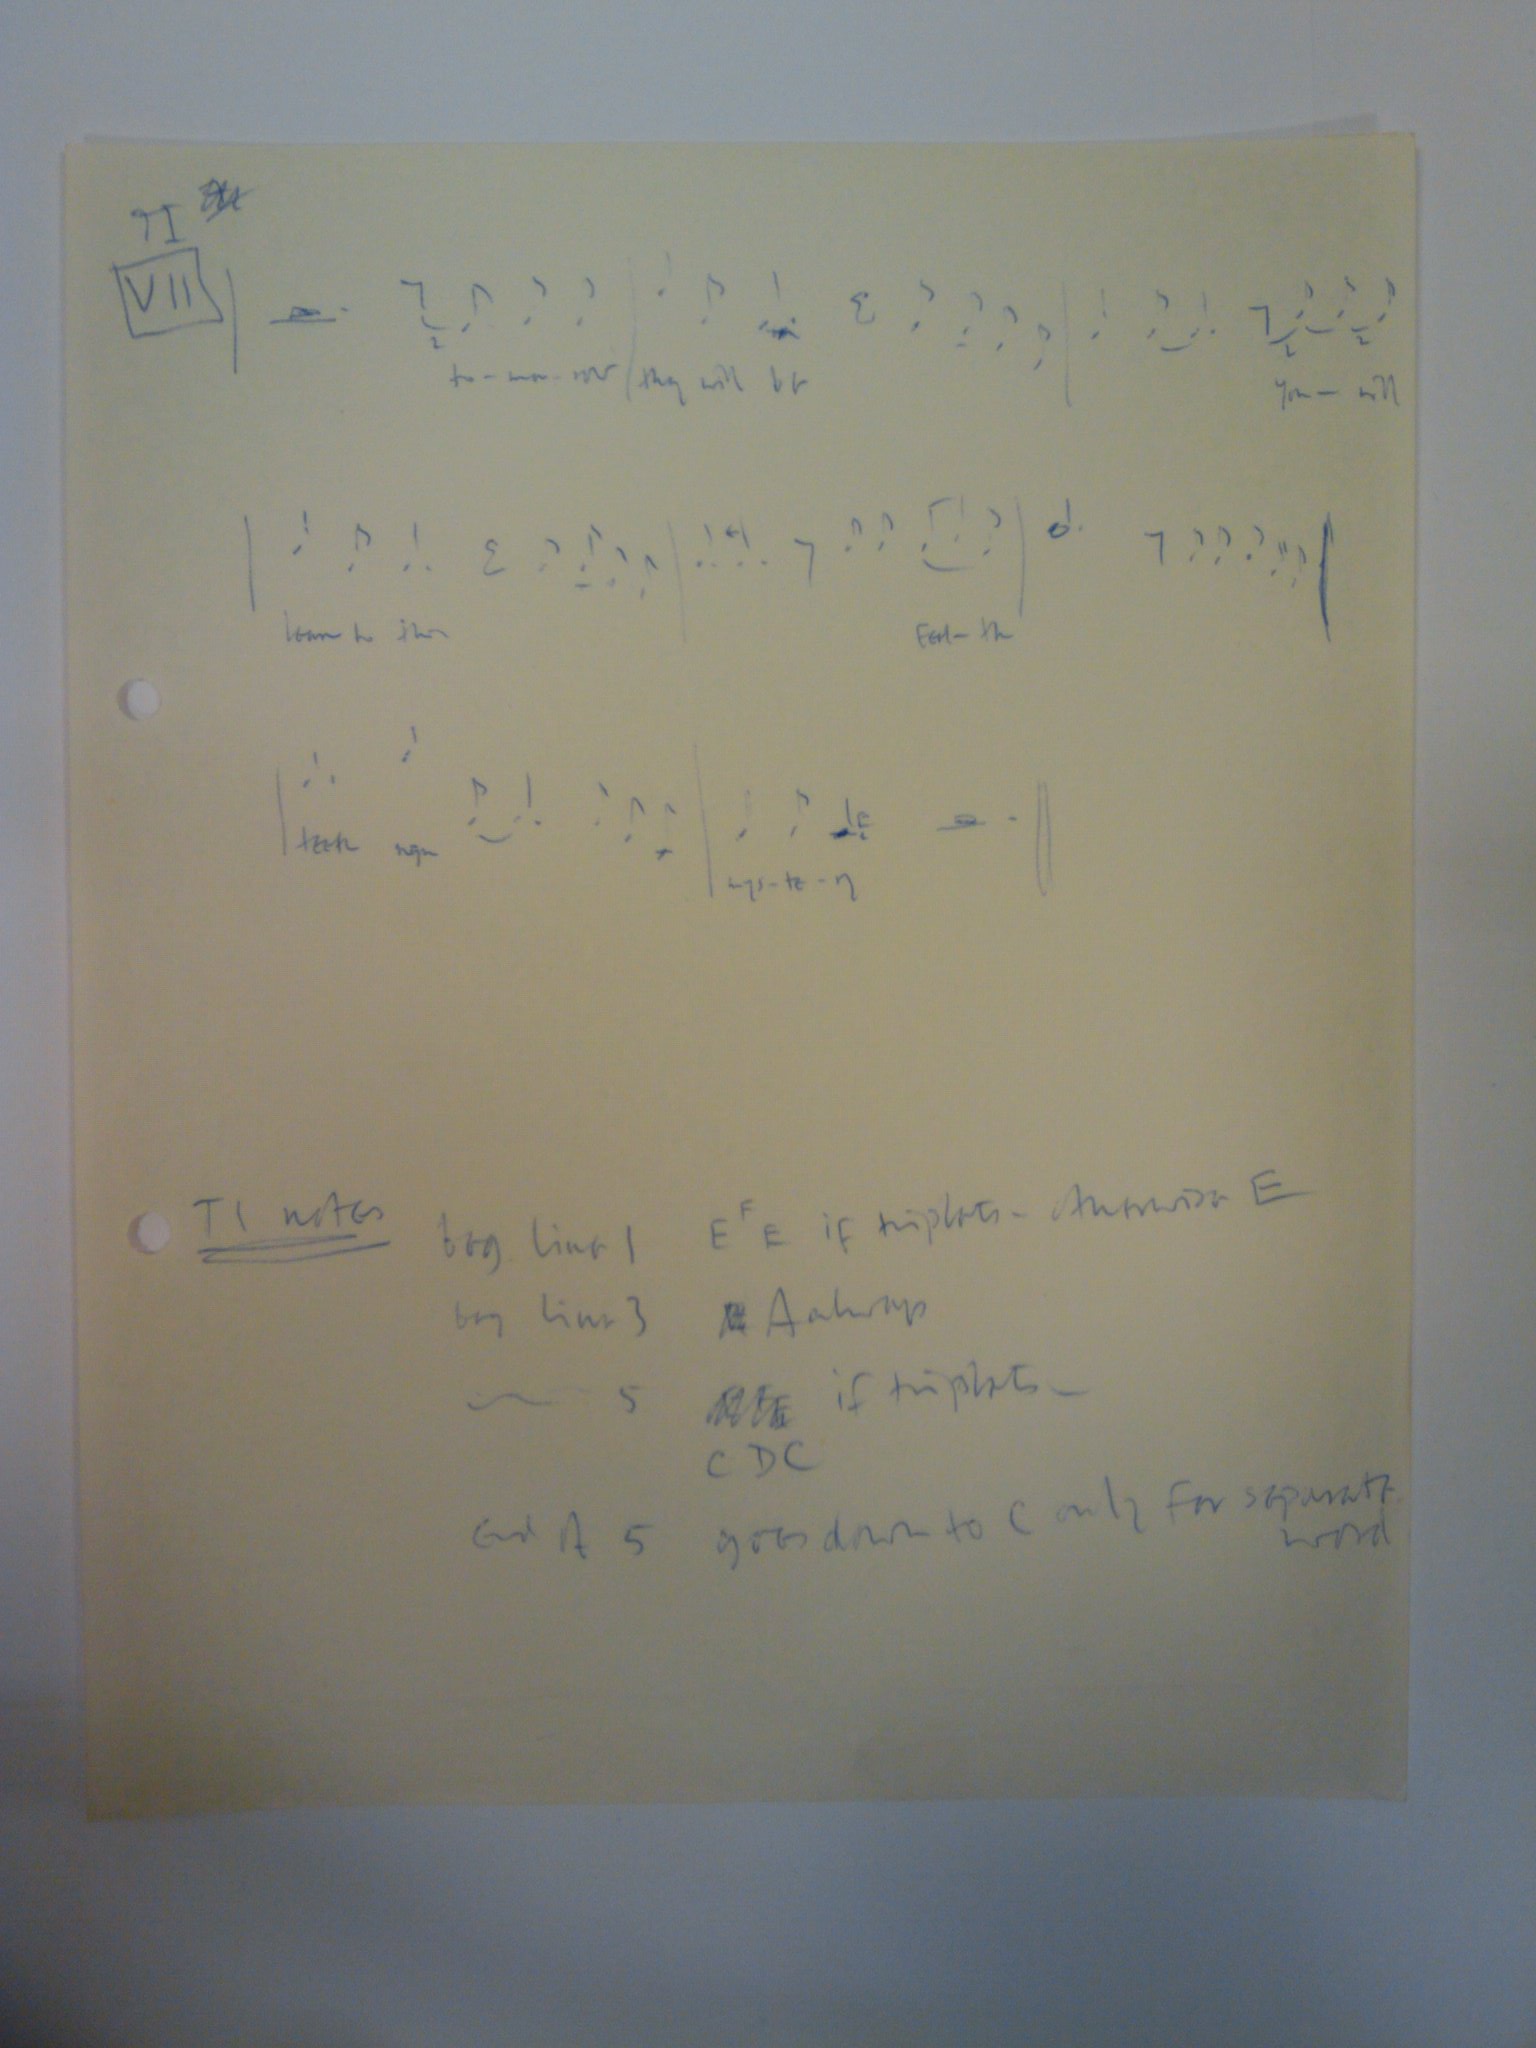 TI
VII
to-mor-row they will be
You- will
learn to
Feel- the
teeth
mys-te-ry
T1 notes beg. line 1 E F E if triplets- otherwise E
beg line 3 A always
5 if triplets-
C D C
End of 5 goes down to C only for separate
word